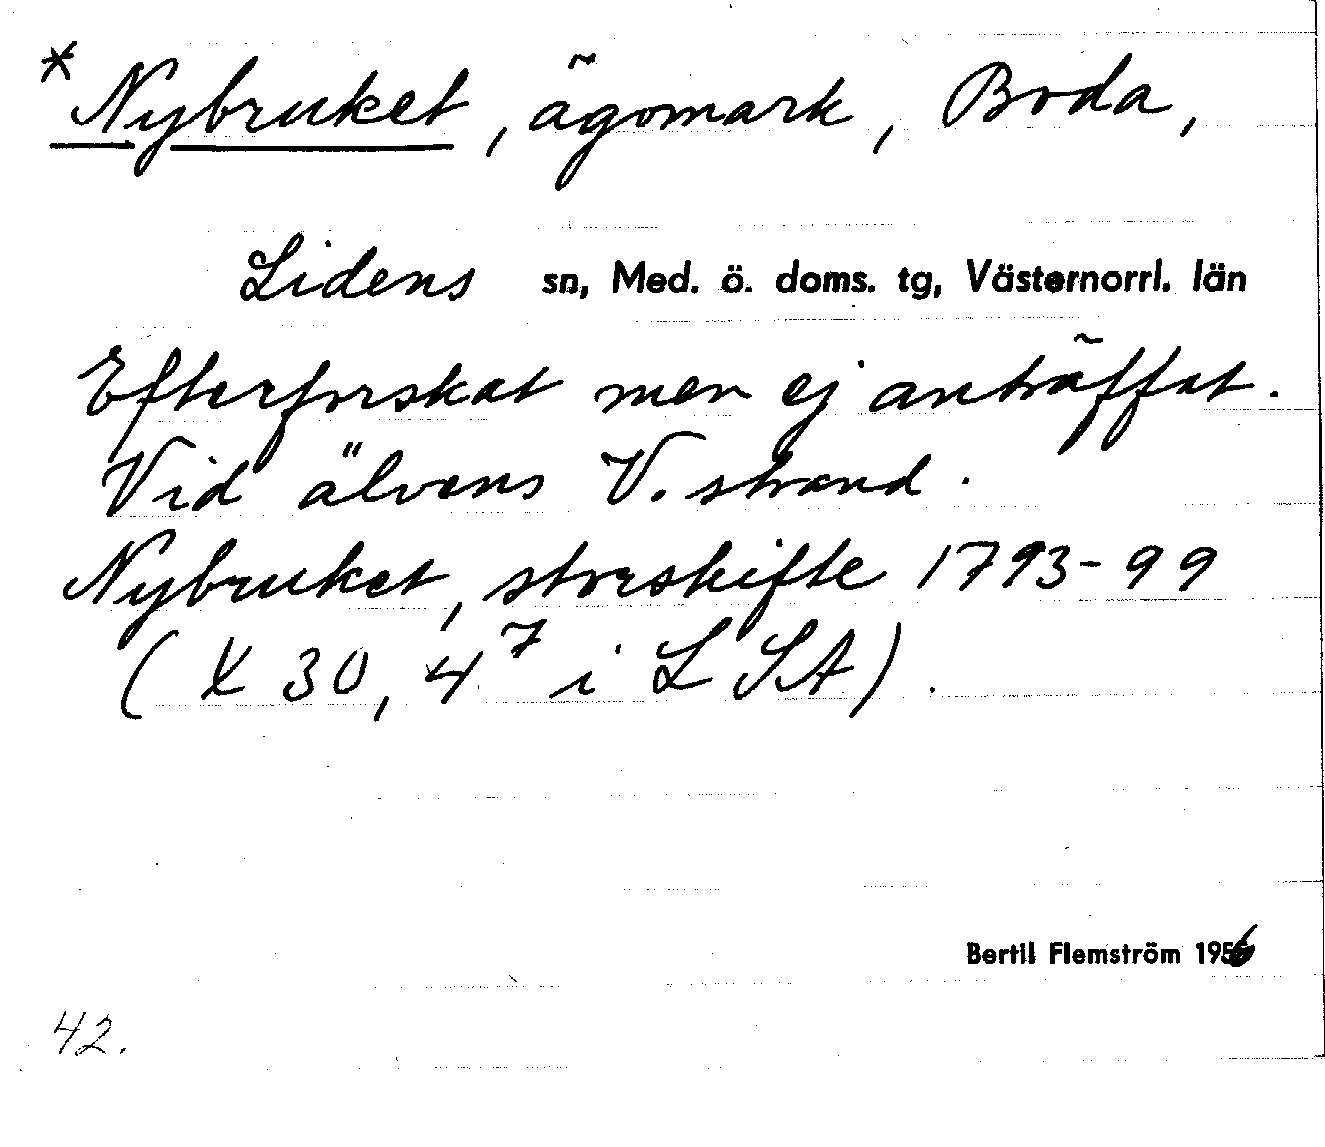 * Nybruket, ägomark, Boda,
Lidens sn, Med. ö. doms. tg, Västernorrl. län
Efterforskat men ej anträffat.
Vid älvens V. strand.
Nybruket, storskifte 1793-99
( X 30, 4⁷ i LSA).
Bertil Flemström 1956
42.